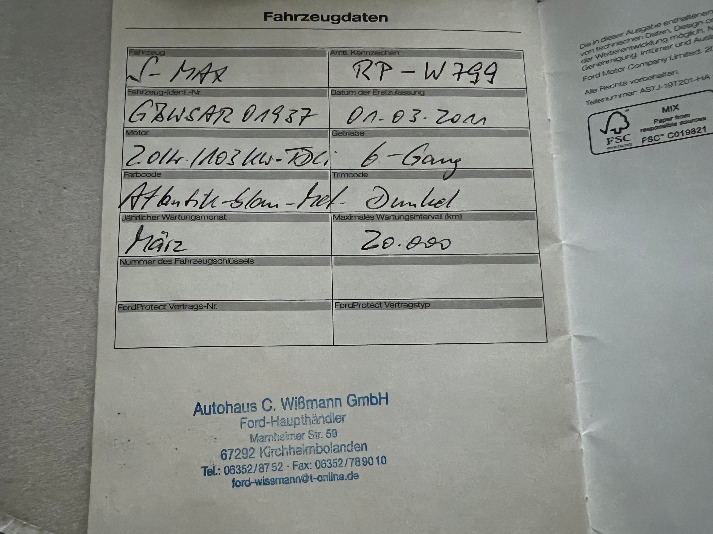 Fahrzeugdaten
Fahrzeug
Amtl. Kennzeichen
S-MAX
RP-W799
Fahrzeug-Ident.-Nr.
Datum der Erstzulassung
GBWSAR01937
01.03.2011
Motor
Getriebe
2.0ltr./103KW-TDCi
6-Gang
Farbcode
Trimcode
Atlantik-blau-Met.
Dunkel
Jährlicher Wartungsmonat
Maximales Wartungsintervall (km)
März
20.000
Nummer des Fahrzeugschlüssels
FordProtect Vertrags-Nr.
FordProtect Vertragstyp
Autohaus C. Wißmann GmbH
Ford-Haupthändler
Marnheimer Str. 59
67292 Kirchheimbolanden
Tel.: 06352/8752 - Fax: 06352/789010
ford-wissmann@t-online.de
Die in dieser Ausgabe enthaltenen
von technischen Daten, Design
der Weiterentwicklung möglich.
Genehmigung. Irrtümer und
Ford Motor Company Limited,
Alle Rechte vorbehalten.
Teilenummer: AS7J-19T201-HA
FSC
MIX
Paper from
responsible sources
FSC™ C019821